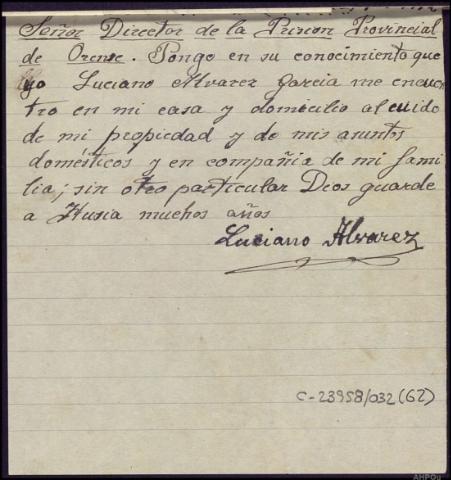 Señor Director de la Prision Provincial
de Orense. Pongo en su conocimiento que
yo Luciano Alvarez Garcia me encuen
tro en mi casa y domicilio al cuido
de mi propiedad y de mis asuntos
domésticos y en compañia de mi fami
lia; sin otro particular Dios guarde
a Husia muchos años
Luciano Alvarez
C-23958/032(62)
AHPOu